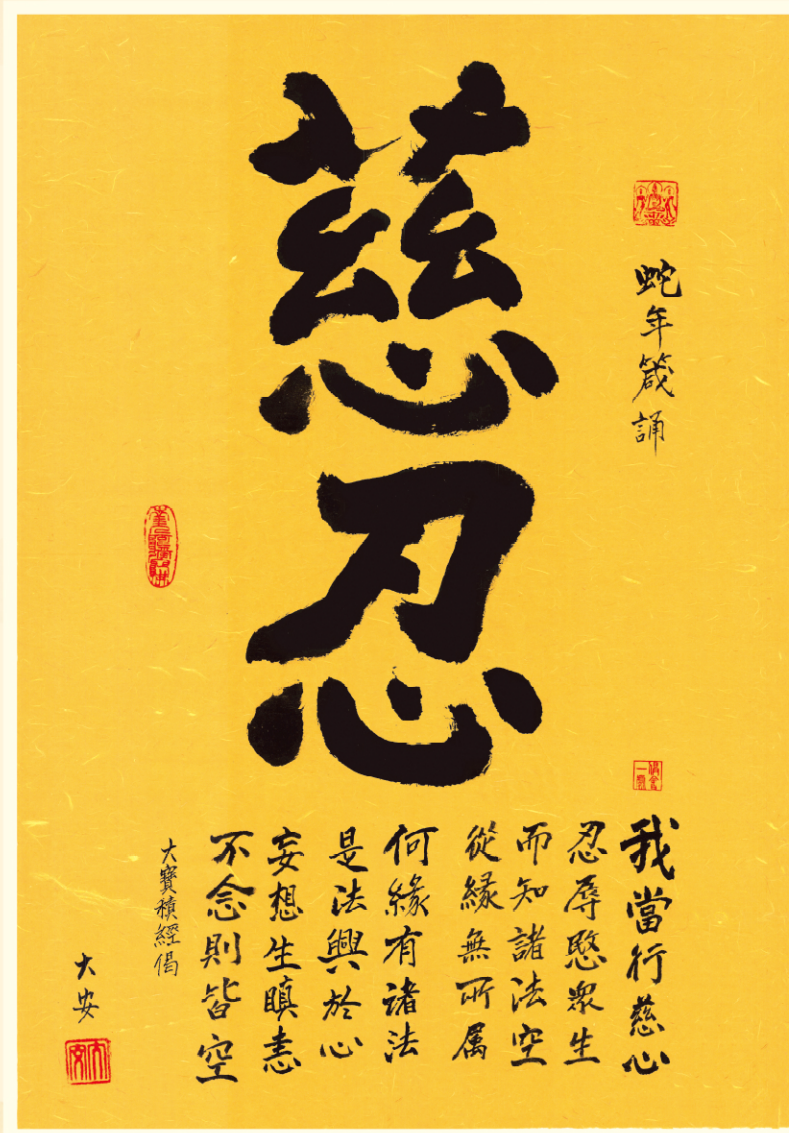 蛇年箴誦
慈忍
我當行慈心
忍辱愍衆生
而知諸法空
從緣無所属
何緣有諸法
是法興於心
妄想生瞋恚
不念則皆空
大寶積經偈
大安
大安